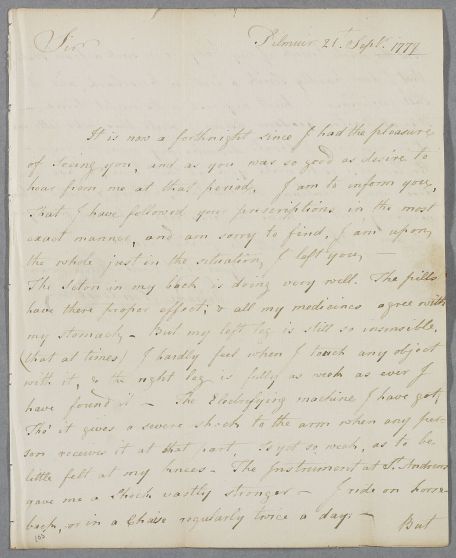 Sir
Pilmuir 21st. Septr. 1777
It is now a forthnight since I had the pleasure
of seeing you, and as you was so good as desire to
hear from me at that period. I am to inform you,
that I have followed your prescriptions in the most
exact manner, and am sorry to find, I am upon
the whole just in the situation I left you, —
The Seton in my back is doing very well. The pills
have there proper effect; & all my medicines agree with
my stomach — But my left leg is still so insensible,
(that at times) I hardly feel when I touch any object
with it, & the right leg is fully as weak as ever I
have found it — The Electrifying machine I have got,
Tho' it gives a severe shock to the arm when any per-
son receives it at that part, is yet so weak, as to be
little felt at my knees — The Instrument at St. Andrews
gave me a Shock vastly stronger — I ride on horse-
back, or in a Chaise regularly twice a day —
But